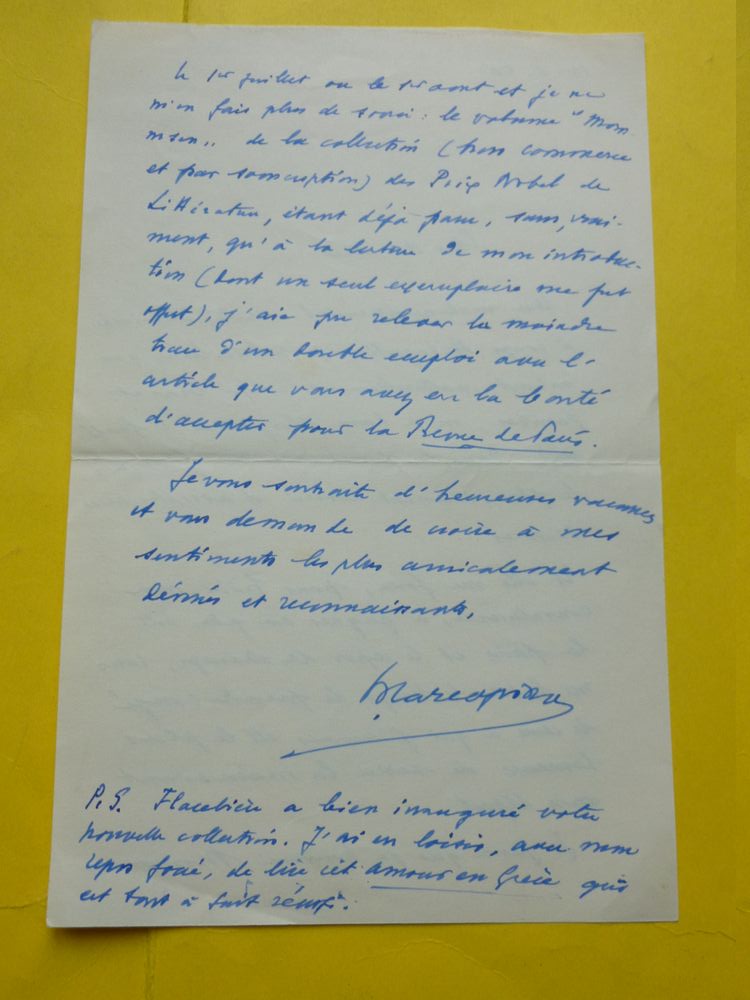 le 1er juillet ou le 1er août et je ne
m'en fais plus de souci : le volume "Mom
msen" de la collection (hors commerce
et par souscription) des Prix Nobel de
Littérature, étant déjà paru, sans, vrai-
ment, qu'à la lecture de mon introduc-
tion (dont un seul exemplaire me fut
offert), j'aie pu relever la moindre
trace d'un double emploi avec l'
article que vous avez eu la bonté
d'accepter pour la Revue de Paris.
Je vous souhaite d'heureuses vacances
et vous demande de croire à mes
sentiments les plus amicalement
dévoués et reconnaissants,
P.S. Flacelière a bien inauguré votre
nouvelle collection. J'ai eu loisir, avec mon
repos forcé, de lire cet Amour en Grèce qui
est tout à fait réussi.